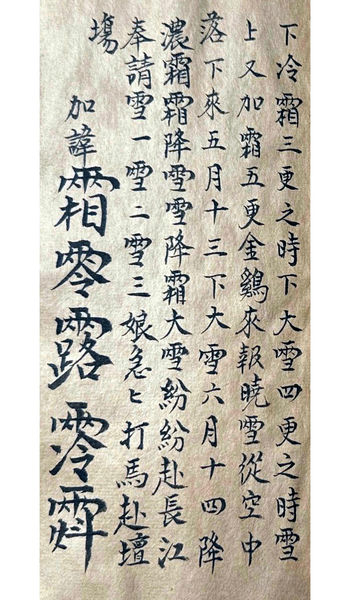 下冷霜三更之時下大雪四更之時雪
上又加霜五更金鷄來報曉雪從空中
落下來五月十三下大雪六月十四降
濃霜霜降雪雪降霜大雪紛紛赴長江
奉請雪一雪二雪三娘急匕打馬赴壇
塲
加諱霜零露